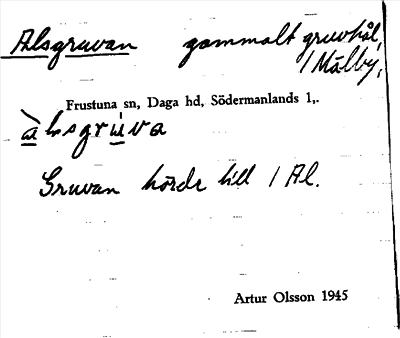 Alsgruvan gammalt gruvhål,
/ Mälby,
Frustuna sn, Daga hd, Södermanlands l,.
àlsgrùva
Gruvan hörde till / Al.
Artur Olsson 1945